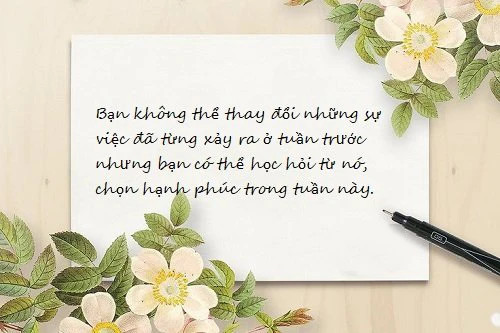 Bạn không thể thay đổi những sự
việc đã từng xảy ra ở tuần trước
nhưng bạn có thể học hỏi từ nó,
chọn hạnh phúc trong tuần này.